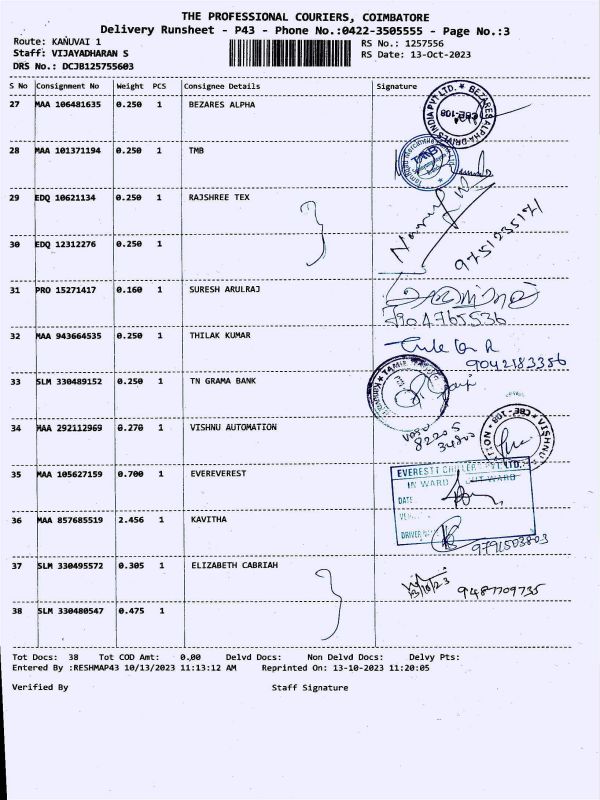 THE PROFESSIONAL COURIERS, COIMBATORE
Delivery Runsheet - P43 - Phone No.:0422-3505555 - Page No.:3
Route: KANUVAI 1
RS No.: 1257556
Staff: VIJAYADHARAN S
RS Date: 13-Oct-2023
DRS No.: DCJB125755603
S No Consignment No Weight PCS Consignee Details Signature
27 MAA 106481635 0.250 1 BEZARES ALPHA
BEZARES ALPHA DRIVES INDIA PVT LTD. CBE-108
28 MAA 101371194 0.250 1 TMB
TMB
29 EDQ 10621134 0.250 1 RAJSHREE TEX
30 EDQ 12312276 0.250 1
9751235171
31 PRO 15271417 0.160 1 SURESH ARULRAJ
7904765536
32 MAA 943664535 0.250 1 THILAK KUMAR
9042183386
33 SLM 330489152 0.250 1 TN GRAMA BANK
34 MAA 292112969 0.270 1 VISHNU AUTOMATION
82205
VISHNU CBE-108
35 MAA 105627159 0.700 1 EVEREVEREST
EVERESTT CHILLER PVT. LTD.
IN WARD OUT WARD
DATE
36 MAA 857685519 2.456 1 KAVITHA
DRIVER
9791503803
37 SLM 330495572 0.305 1 ELIZABETH CABRIAH
13/10/23 9487709735
38 SLM 330480547 0.475 1
Tot Docs: 38 Tot COD Amt: 0.00 Delvd Docs: Non Delvd Docs: Delvy Pts:
Entered By :RESHMAP43 10/13/2023 11:13:12 AM Reprinted On: 13-10-2023 11:20:05
Verified By Staff Signature